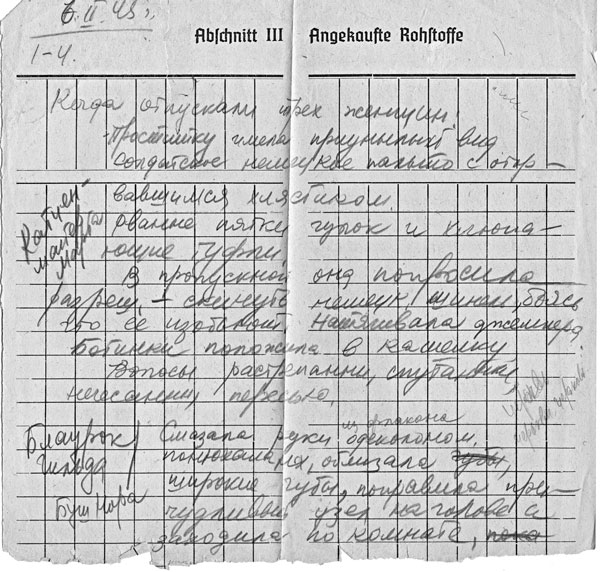 6.II.45 г.
1-4.
Abschnitt III Angekaufte Rohstoffe
Когда отпускали трех женщин.
- Проститутку имела приунылый вид
солдатское немецкое пальто с оторвавшимся хлястиком.
рванные пятки чулок и хлюпающие туфли.
В пропускной она попросила
разреш. – скинуть немецк. шинель, боясь
что ее изобьют. Натягивала джемпера
Ботинки положила в кошелку
Волосы растрепанны, спутанны,
нечесанны
Катцен-
майер
Марта
Блаурок
Гильда
Смазала руки из флакона одеколоном,
понюхала их, облизала губы,
широкие губы, поправила при-
чудливый узел на голове и
Буш Нора
заходила по комнате, пока